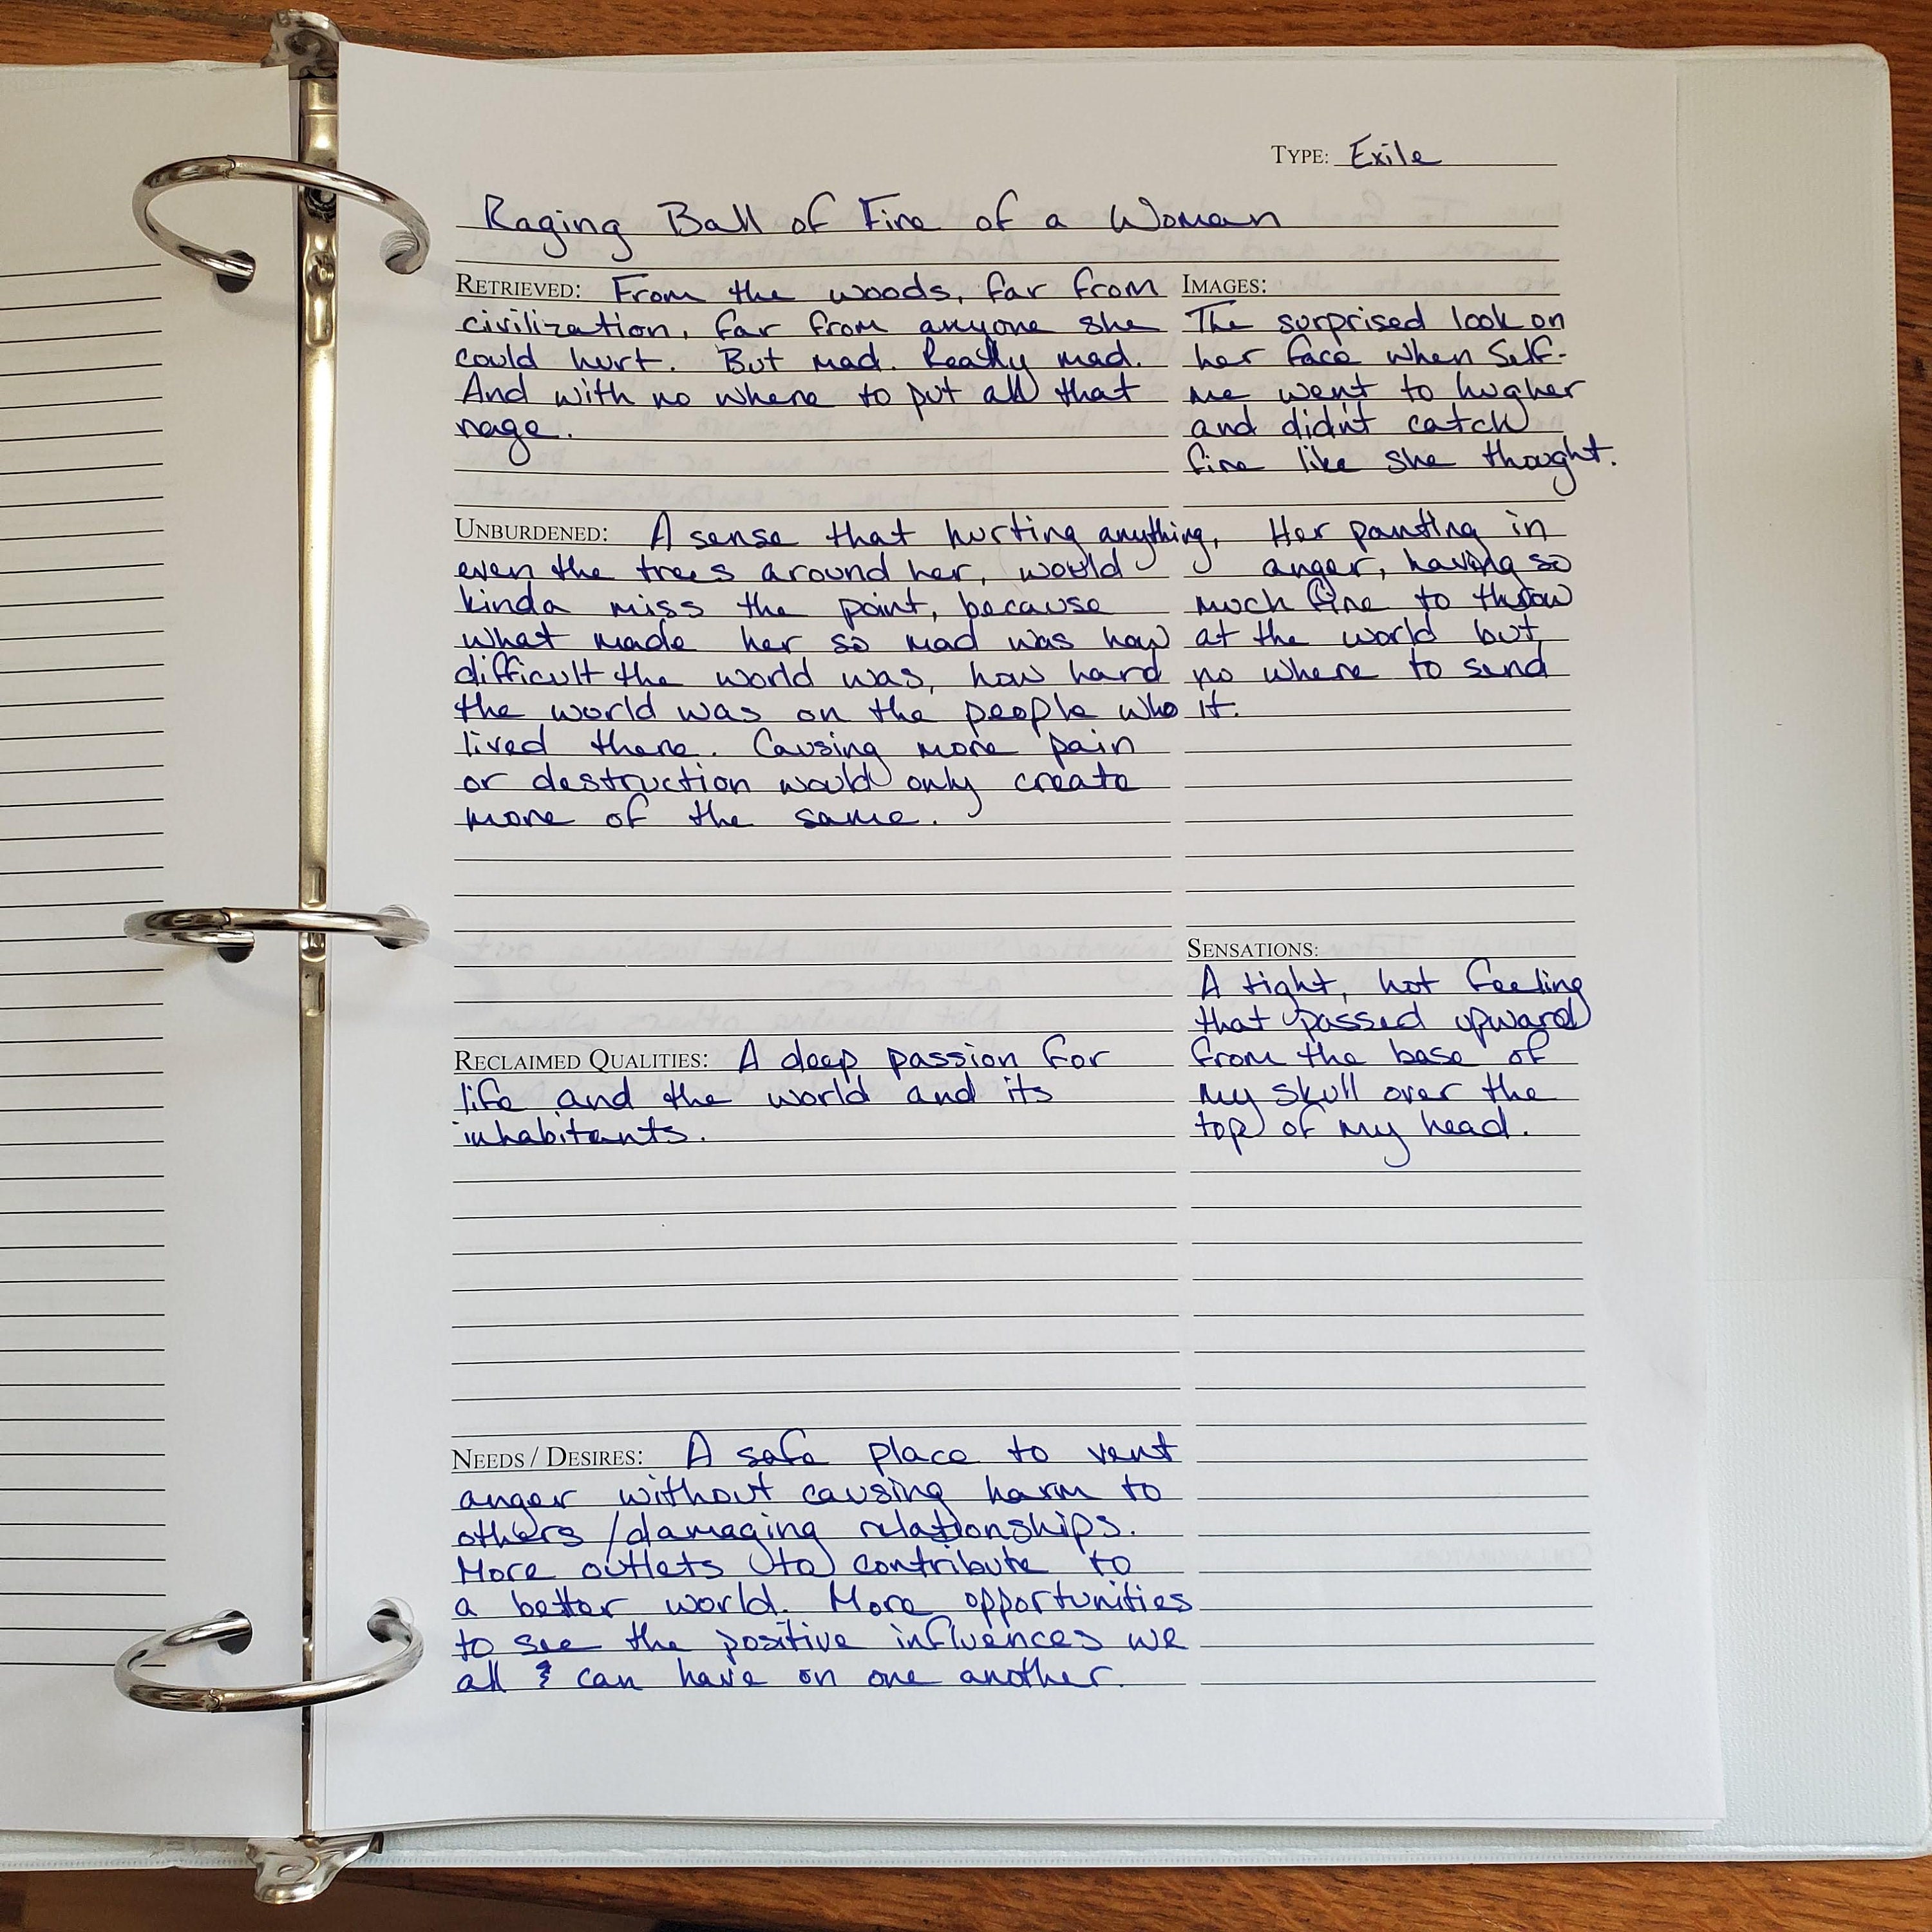 TYPE: Exile
Raging Ball of Fire of a Woman
RETRIEVED: From the woods, far from
civilization, far from anyone she
could hurt. But mad. Really mad.
And with no where to put all that
rage.
IMAGES:
The surprised look on
her face when Self-
me went to hug her
and didn't catch
fire like she thought.
Her panting in
anger, having so
much fire to throw
at the world but
no where to send
it.
UNBURDENED: A sense that hurting anything,
even the trees around her, would
kinda miss the point, because
what made her so mad was how
difficult the world was, how hard
the world was on the people who
lived there. Causing more pain
or destruction would only create
more of the same.
SENSATIONS:
A tight, hot feeling
that passed upward
from the base of
my skull over the
top of my head.
RECLAIMED QUALITIES: A deep passion for
life and the world and its
inhabitants.
NEEDS / DESIRES: A safe place to vent
anger without causing harm to
others / damaging relationships.
More outlets to contribute to
a better world. More opportunities
to see the positive influences we
all & can have on one another.